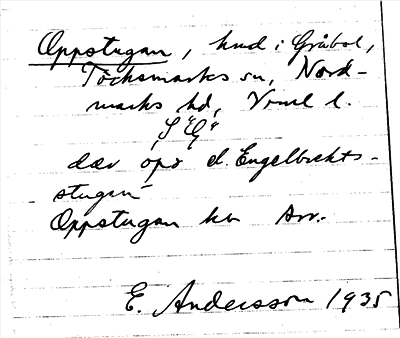 Oppstugan, hmd i Gråbol,
Töcksmarks sn, Nord-
marks hd, Vrml l.
"SG"
där öpö el. Engelbrekts-
stugan
Oppstugan
E. Andersson 1935